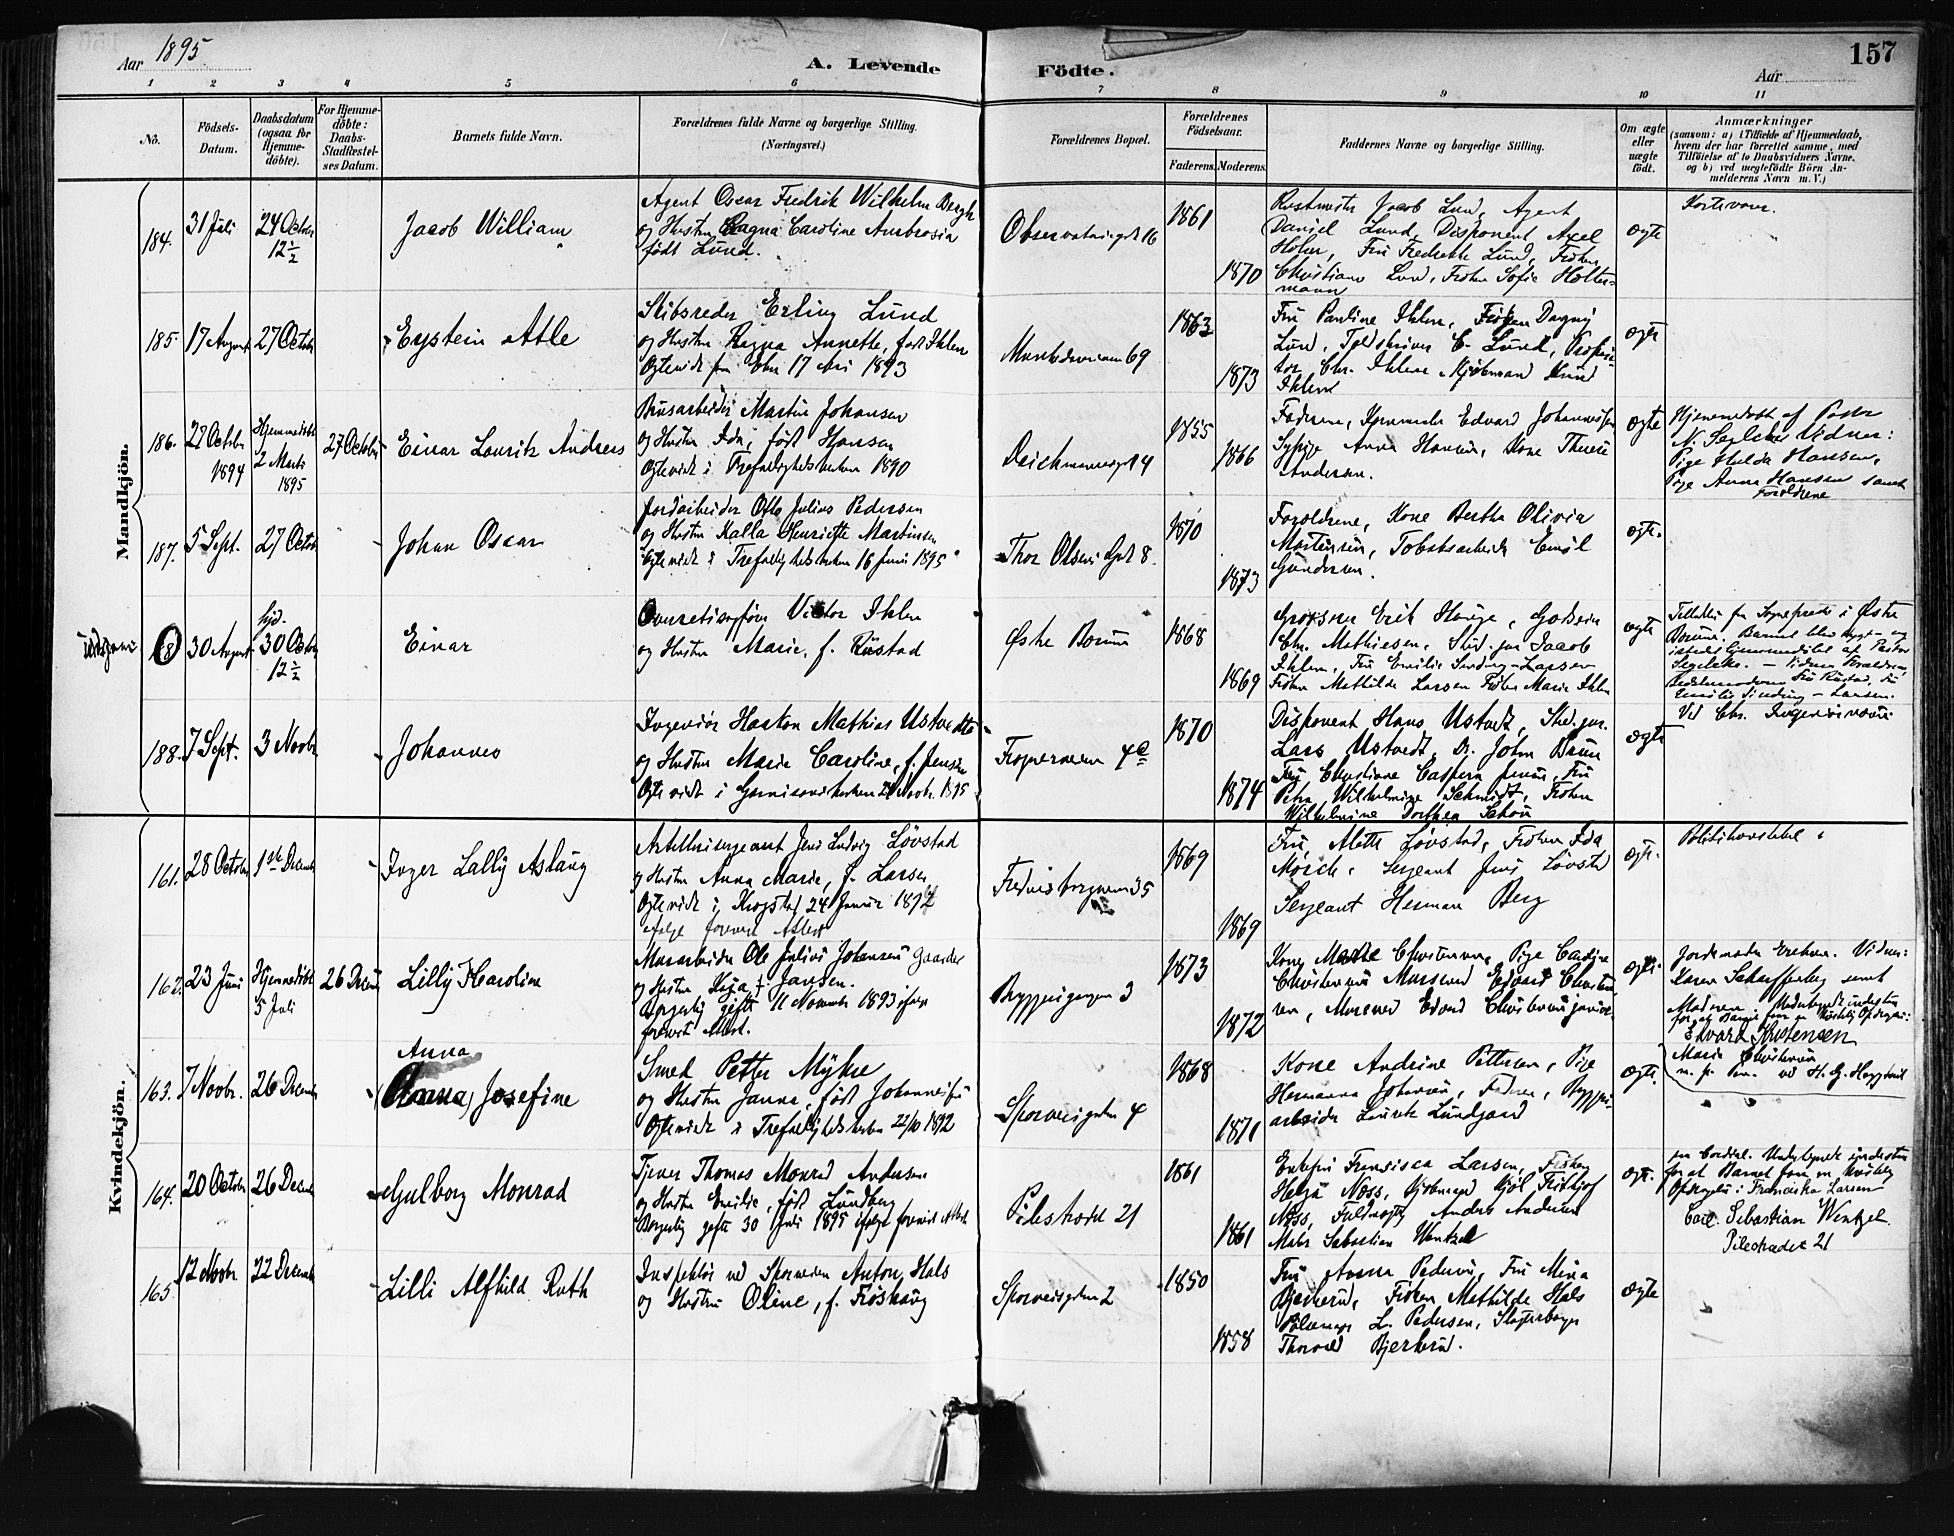 Aar 1895.
A. Levende
Födte.
Aar
157
1
2
3
4
5
6
7
8
9
10
11
No.
Födsels-
Datum.
Daabsdatum
(ogsaa for
Hjemme-
döbte).
For Hjemme-
döbte:
Daabs-
Stadfæstel-
ses Datum.
Barnets fulde Navn.
Forældrenes fulde Navne og borgerlige Stilling.
(Næringsvei.)
Forældrenes Bopæl.
Forældrenes
Födselsaar.
Faderens.
Moderens.
Faddernes Navne og borgerlige Stilling.
Om ægte
eller
uægte
født.
Anmærkninger
(saasom: a) i Tilfælde af Hjemmedaab,
hvem der har forrettet samme, med
Tilföielse af to Daabsvidners Navne.
og b) ved uægtefödte Börn An-
melderens Navn m. V.)
Mandkjön.
184.
31 Juli
24 Octobr
12½
Jacob William
Agent Oscar Fredrik Wilhelm Bergh
og Hustru Ragna Caroline Ambrosia
født Lund.
Observatoriegd 16
1861
1870
Jacob Lund, Agent
Daniel Lund, Disponent Axel
Holm, Fru Fredrikke Lund, Frøken
Christiane Lund, Frøken Sofie Holter-
mann
ægte
185.
17 August
27 Octobr
Eystein Atle
Skibsreder Erling Lund
og Hustru Ragna Annette, født Ihlen
Ægteviet 17 1893
69
1863
1873
Fru Pauline Ihlen, Frøken Dagny
Lund, Toldskriver E. Lund,
Chr. Ihlen, Kjøbmand
Ihlen
ægte
186.
27 Octobr
1894
Hjemmedøbt
2 Marts
1895
27 October
Einar Lauritz Andreas
Martin Johansen
og Hustru Ida, født Hansen
Ægteviet i Trefoldighedskirken 1890
Deichmannsgd 4
1855
1866
Faderen, Edvard Johannesen
Sypige Anna Hansen, Kone Therese
Andersen.
ægte
Hjemmedøbt af Pastor
N. Segelcke Vidner:
Pige Hulda Hansen,
Pige Anna Hansen samt
Forældrene
187.
5 Sept.
27 Octobr
Johan Oscar
Jordarbeider Otto Julius Pedersen
og Hustru Kalla Henriette Martinsen
Ægteviet i Trefoldighedskirken 16 Juni 1895
Thor Olsens Gd 8.
1870
1873
Forældrene, Kone Bertha Olivia
Martinsen, Tobaksarbeider Emil
Gundersen.
ægte.
hjd.
30 August
30 Octbr
12½
Einar
Overretssagfører Victor Ihlen
og Hustru Marie, f. Rustad
Østre Bærum
1868
1869
Grosserer Erik Hauge, Godseier
Chr. Mathiesen, Stud. jur Jacob
Ihlen, Fru Emilie Sinding-Larsen
Frøken Mathilde Larsen Frøken Marie Ihlen
ægte
Østre
Bærum. Barnet blev
af Pastor
Segelcke. – Vidner Forældrene,
Fru Rustad, Fru
Emilie Sinding-Larsen.
188.
7 Sept.
3 Novbr
Johannes
Ingeniør Haakon Mathias Ustvedt
og Hustru Marie Caroline, f. Jensen
Ægteviet i Garnisonskirken 21 Novbr. 1895
Frognerveien 4
1870
1874
Disponent Hans Ustvedt, Stud. jur.
Lars Ustvedt, Dr. Johan Bruun
Fru Christiane Caspara Jensen, Fru
Petra Wilhelmine Schmidt, Frøken
Wilhelmine Dorthea Schou
ægte
Ved Chr.
Kvindekjön.
161.
28 October
1ste Decembr
Inger Lally Aslaug
Artillerisergeant Jens Ludvig Løvstad
og Hustru Anna Marie, f. Larsen
Ægteviet i Krogstad 24 Januar 1892
ifølge forevist Attest
35
1869
1869
Fru Alette Løvstad, Frøken Ida
Mørch, Sergeant Jens Løvstad
Sergeant Herman Berg
ægte.
162.
23 Juni
Hjemmedøbt
5 Juli
26 Decem
Lilly Karoline
Murarbeider Ole Julius Johansen Gaarder
og Hustru Kaja f. Jansen.
Borgerlig gifte 11 November 1893 ifølge
forevist Attest.
Bryggerigangen 3
1873
1872
Kone Marie Christensen, Pige Cathrine
Christensen Mursvend Edvard Christen-
sen, Murer Edvard Christensen junior.
ægte.
Vidner:
Karen Scharffenberg samt
Moderen.
Edvard Kristensen
Marie Christensen
163.
7 Novbr.
26 Decembr
Anna
Anna Josefine
Smed Petter Myhre
og Hustru Janna, født Johannesen
Ægteviet i Trefoldighedskirken 22/10 1892
Sporveisgaden 4
1868
1871
Kone Andrine Pettersen, Pige
Hermanna Johansen, Faderen, Bryggeri-
arbeider Laurits Lundgaard
ægte.
164.
20 Octobr
26 Decemb
Gulborg Monrad
Tjener Thomas Monrad Andersen
og Hustru Emilie, født Lundberg
Borgerlig gifte 30 Juli 1895 ifølge forevist Attest
Pilestrædet 21
1861
1861
Enkefru Francisca Larsen, Frøken
Helga Næss, Kjøbmand Kjøl Fridtjof
Næss, Anders Andersen
Maler Sebastian Wentzel
ægte.
for at Barnet faar en kristelig
Opdragelse: Franciska Larsen
Carl Sebastian Wentzel
Pilestrædet 21
165.
12 Novbr.
22 Decemb
Lilli Alfhild Ruth
Inspektør ved Sporveien Anton Hals
og Hustru Oline, f. Frøshaug
Sporveisgaden 2
1850
1858
Fru Anna Pedersen, Fru Mina
Bjerkerud, Frøken Mathilde Hals
L. Pedersen,
Thorvald Bjerkerud.
ægte